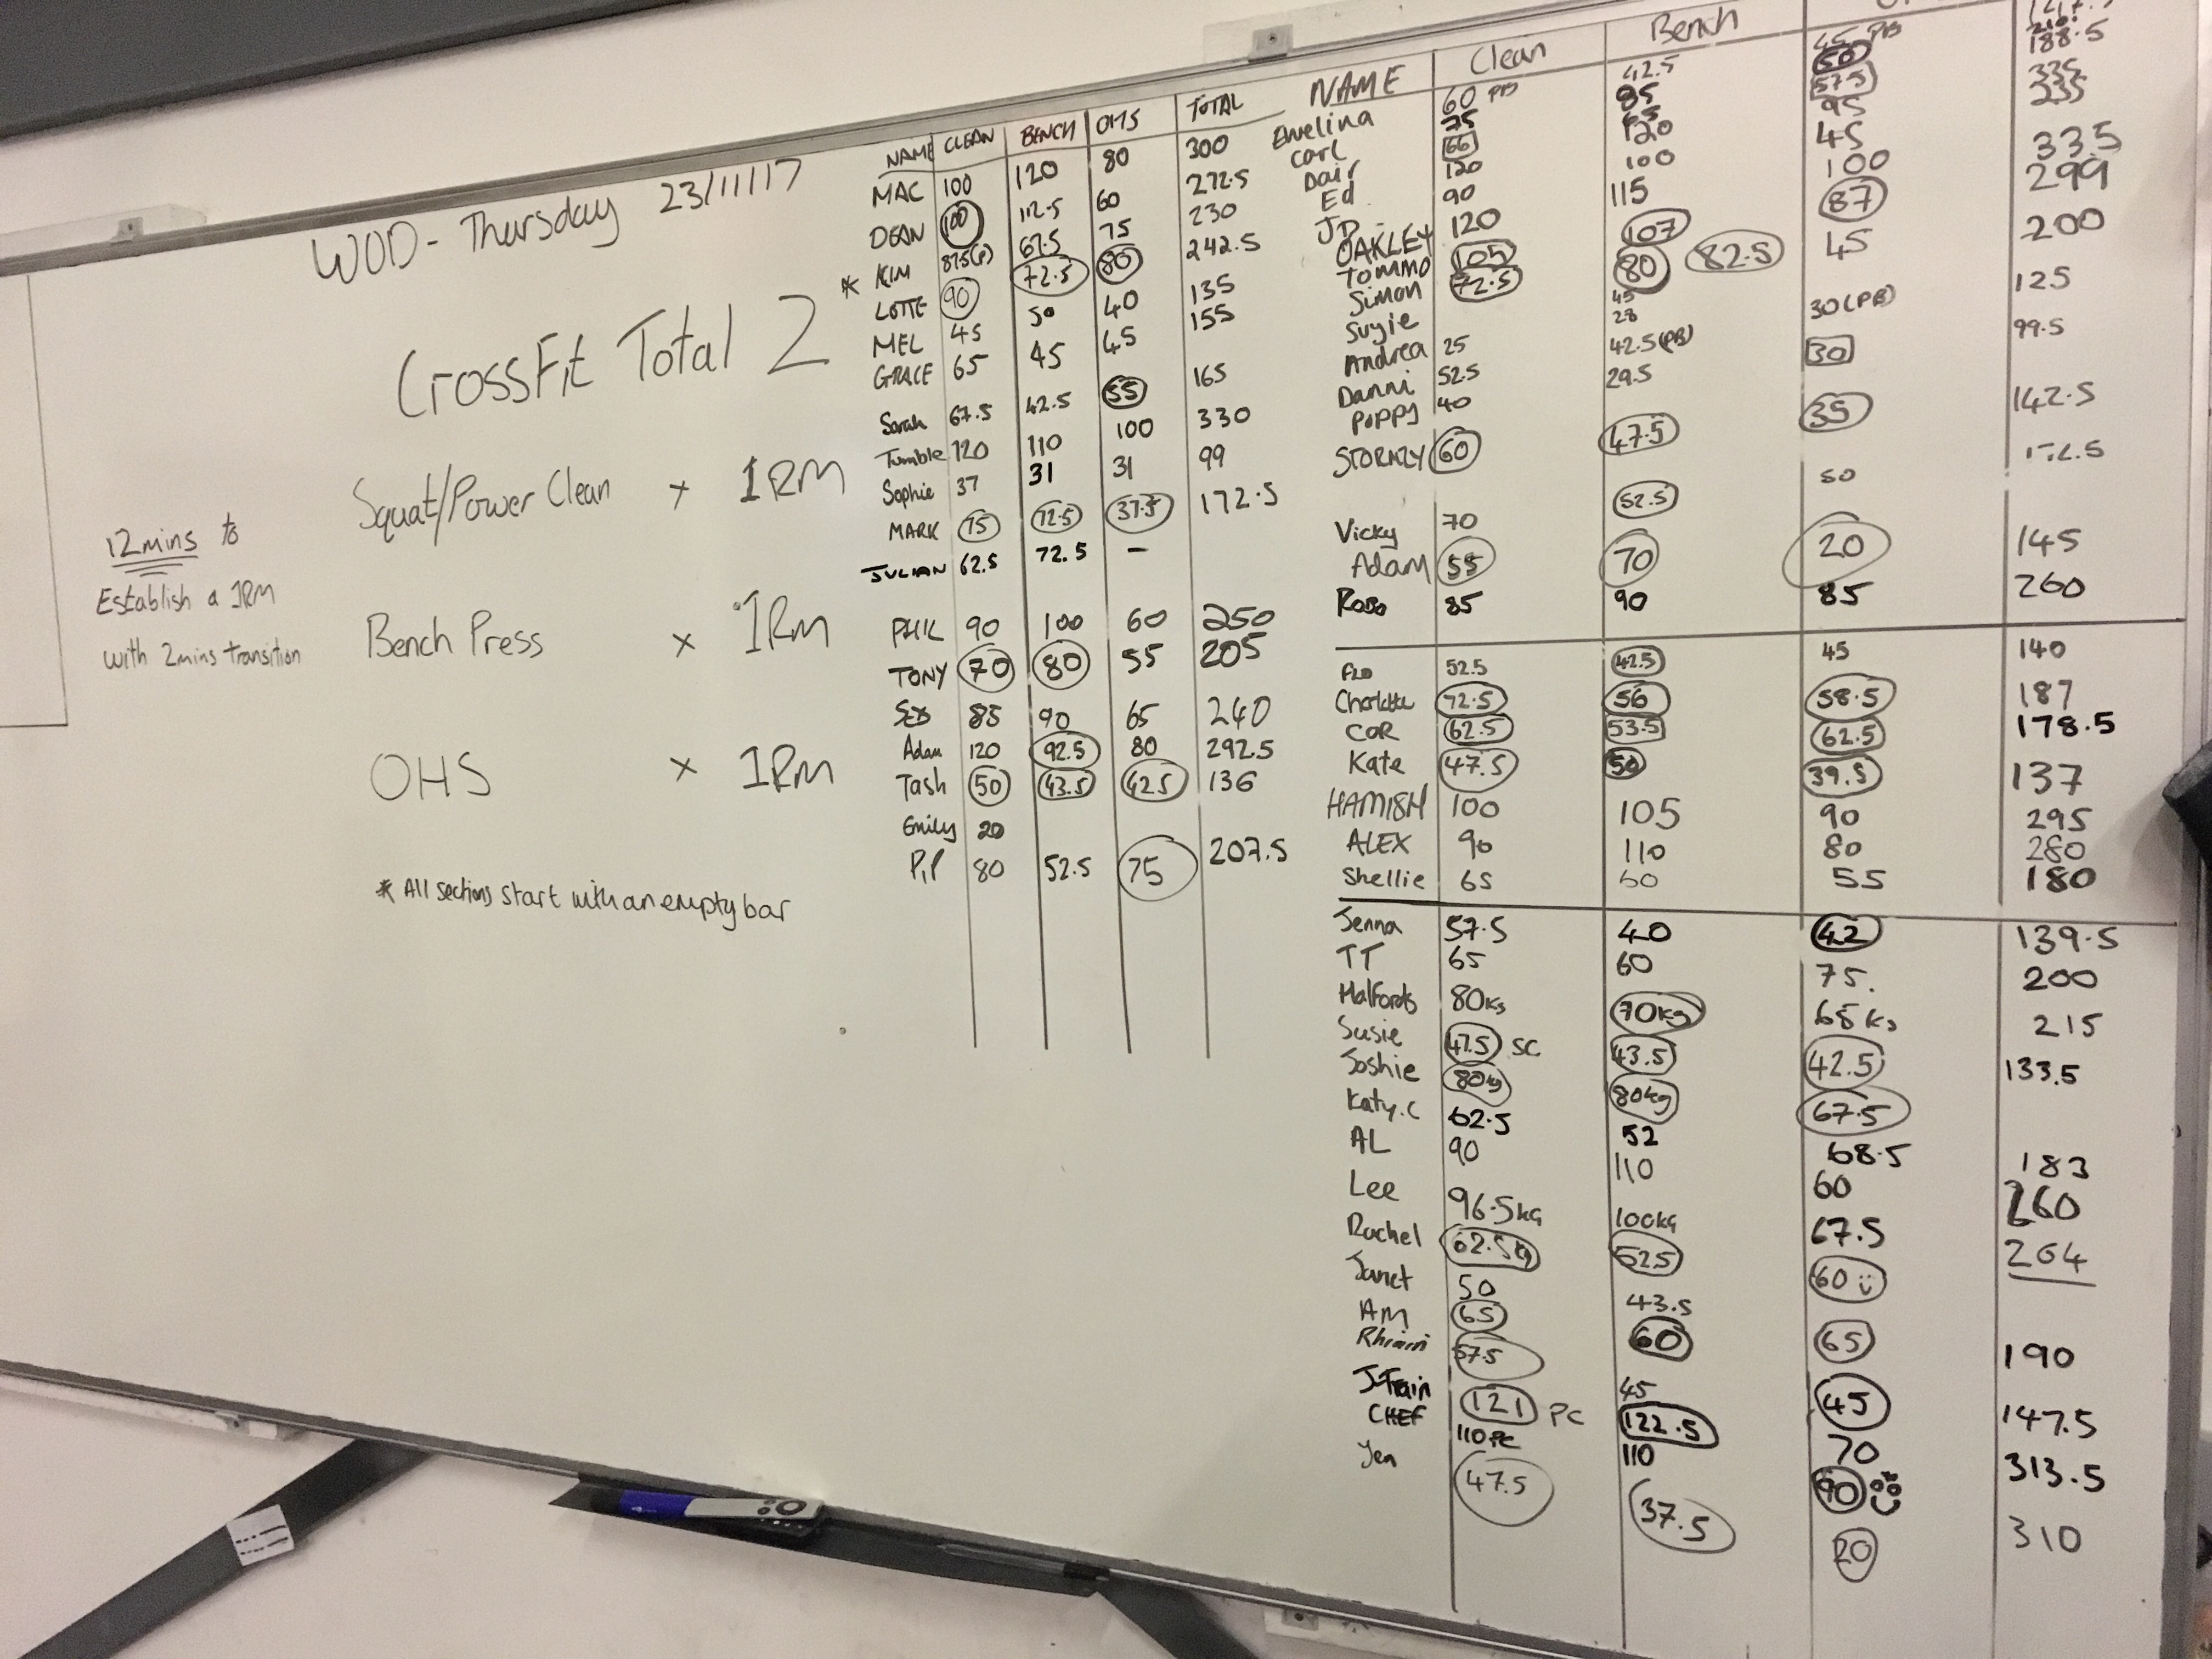 WOD - Thursday 23/11/17
CrossFit Total 2
Squat/Power Clean x 1RM
12mins to
Establish a 1RM
with 2mins transition
Bench Press x 1RM
OHS x 1RM
* All sections start with an empty bar
NAME CLEAN BENCH OHS TOTAL
MAC 100 120 80 300
DEAN 100 112.5 60 272.5
* KIM 87.5(P) 67.5 75 230
LOTTE 90 72.5 80 242.5
MEL 45 50 40 135
GRACE 65 45 45 155
Sarah 67.5 42.5 55 165
Tumble 120 110 100 330
Sophie 37 31 31 99
MARK 75 72.5 37.5 172.5
JULIAN 62.5 72.5 -
PHIL 90 100 60 250
TONY 70 80 55 205
SEB 85 90 65 240
Adam 120 92.5 80 292.5
Tash 50 43.5 42.5 136
Emily 20
PIP 80 52.5 75 207.5
NAME Clean Bench
Ewelina 60 PB 42.5 45 PB
Carl 75 85 50 210
Dair 66 57.5 188.5
Ed 120 120 95 335
JD 90 100 45 235
OAKLEY 120 115 100 335
TOMMO 105 107 87 299
Simon 72.5 80 82.5 45 200
Suzie 45
Andrea 25 28
Danni 52.5 42.5(PB) 30(PB) 125
Poppy 40 29.5 30 99.5
STORMZY 60 47.5 35 142.5
Vicky 70 52.5 50
Adam 55 70 20 145
Robo 85 90 85 260
FLO 52.5 42.5 45 140
Charlotte 72.5 56 58.5 187
COR 62.5 53.5 62.5 178.5
Kate 47.5 50 39.5 137
HAMISH 100 105 90 295
ALEX 90 110 80 280
Shellie 65 60 55 180
Jenna 57.5 40 42 139.5
TT 65 60 75. 200
Halfords 80kg 70kg 65kg 215
Susie 47.5 SC 43.5 42.5 133.5
Joshie 80kg 80kg 67.5
Katy.C 62.5 52 68.5 183
AL 90 110 60 260
Lee 96.5kg 100kg 67.5 264
Rachel 62.5kg 52.5 60
Janet 50 43.5
AM 65 60 65 190
Rhiain 57.5 45 45 147.5
J-Train 121 PC 122.5 70 313.5
CHEF 110 PC 110 90 310
Jen 47.5 37.5 20